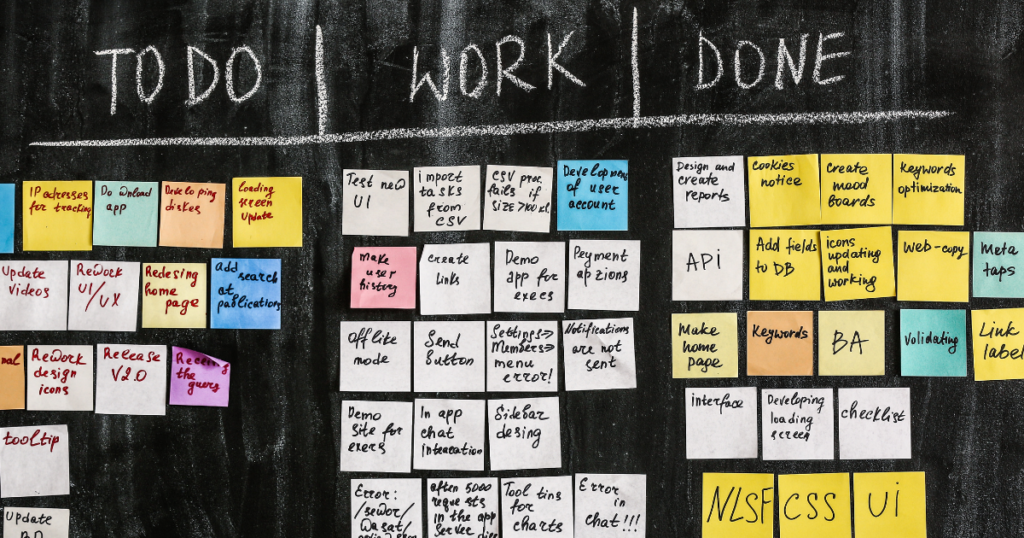 TO DO | WORK | DONE
IP adresses
for tracking
Download
app
Developing
diskes
Loading
screen
update
Update
videos
Rework
UI/UX
Redesing
home
page
add
search
at
publications
Rework
design
icons
Release
V2.0
the
tooltip
Update
Test new
UI
import
tasks
from
CSV
CSV proc
fails if
size >100
Development
of user
account
make
user
history
create
links
Demo
app for
execs
Peyment
apzions
Offlike
mode
Send
Button
Settings=>
Members=>
menu
error!
Notifications
are not
sent
Demo
site for
execs
In app
chat
Sidebar
desing
Error:
after 5000
requests
in the app
server
Tool tins
for
charts
Error
in
chat!!!
Design and
create
reports
cookies
notice
create
mood
Boards
Keywords
optimization
API
Add fields
to DB
icons
updating
and
working
Web-copy
Meta
taps
Make
home
page
Keywords
BA
Validating
Link
label
interface
Developing
loading
screen
checklist
NLSF
CSS
Ui